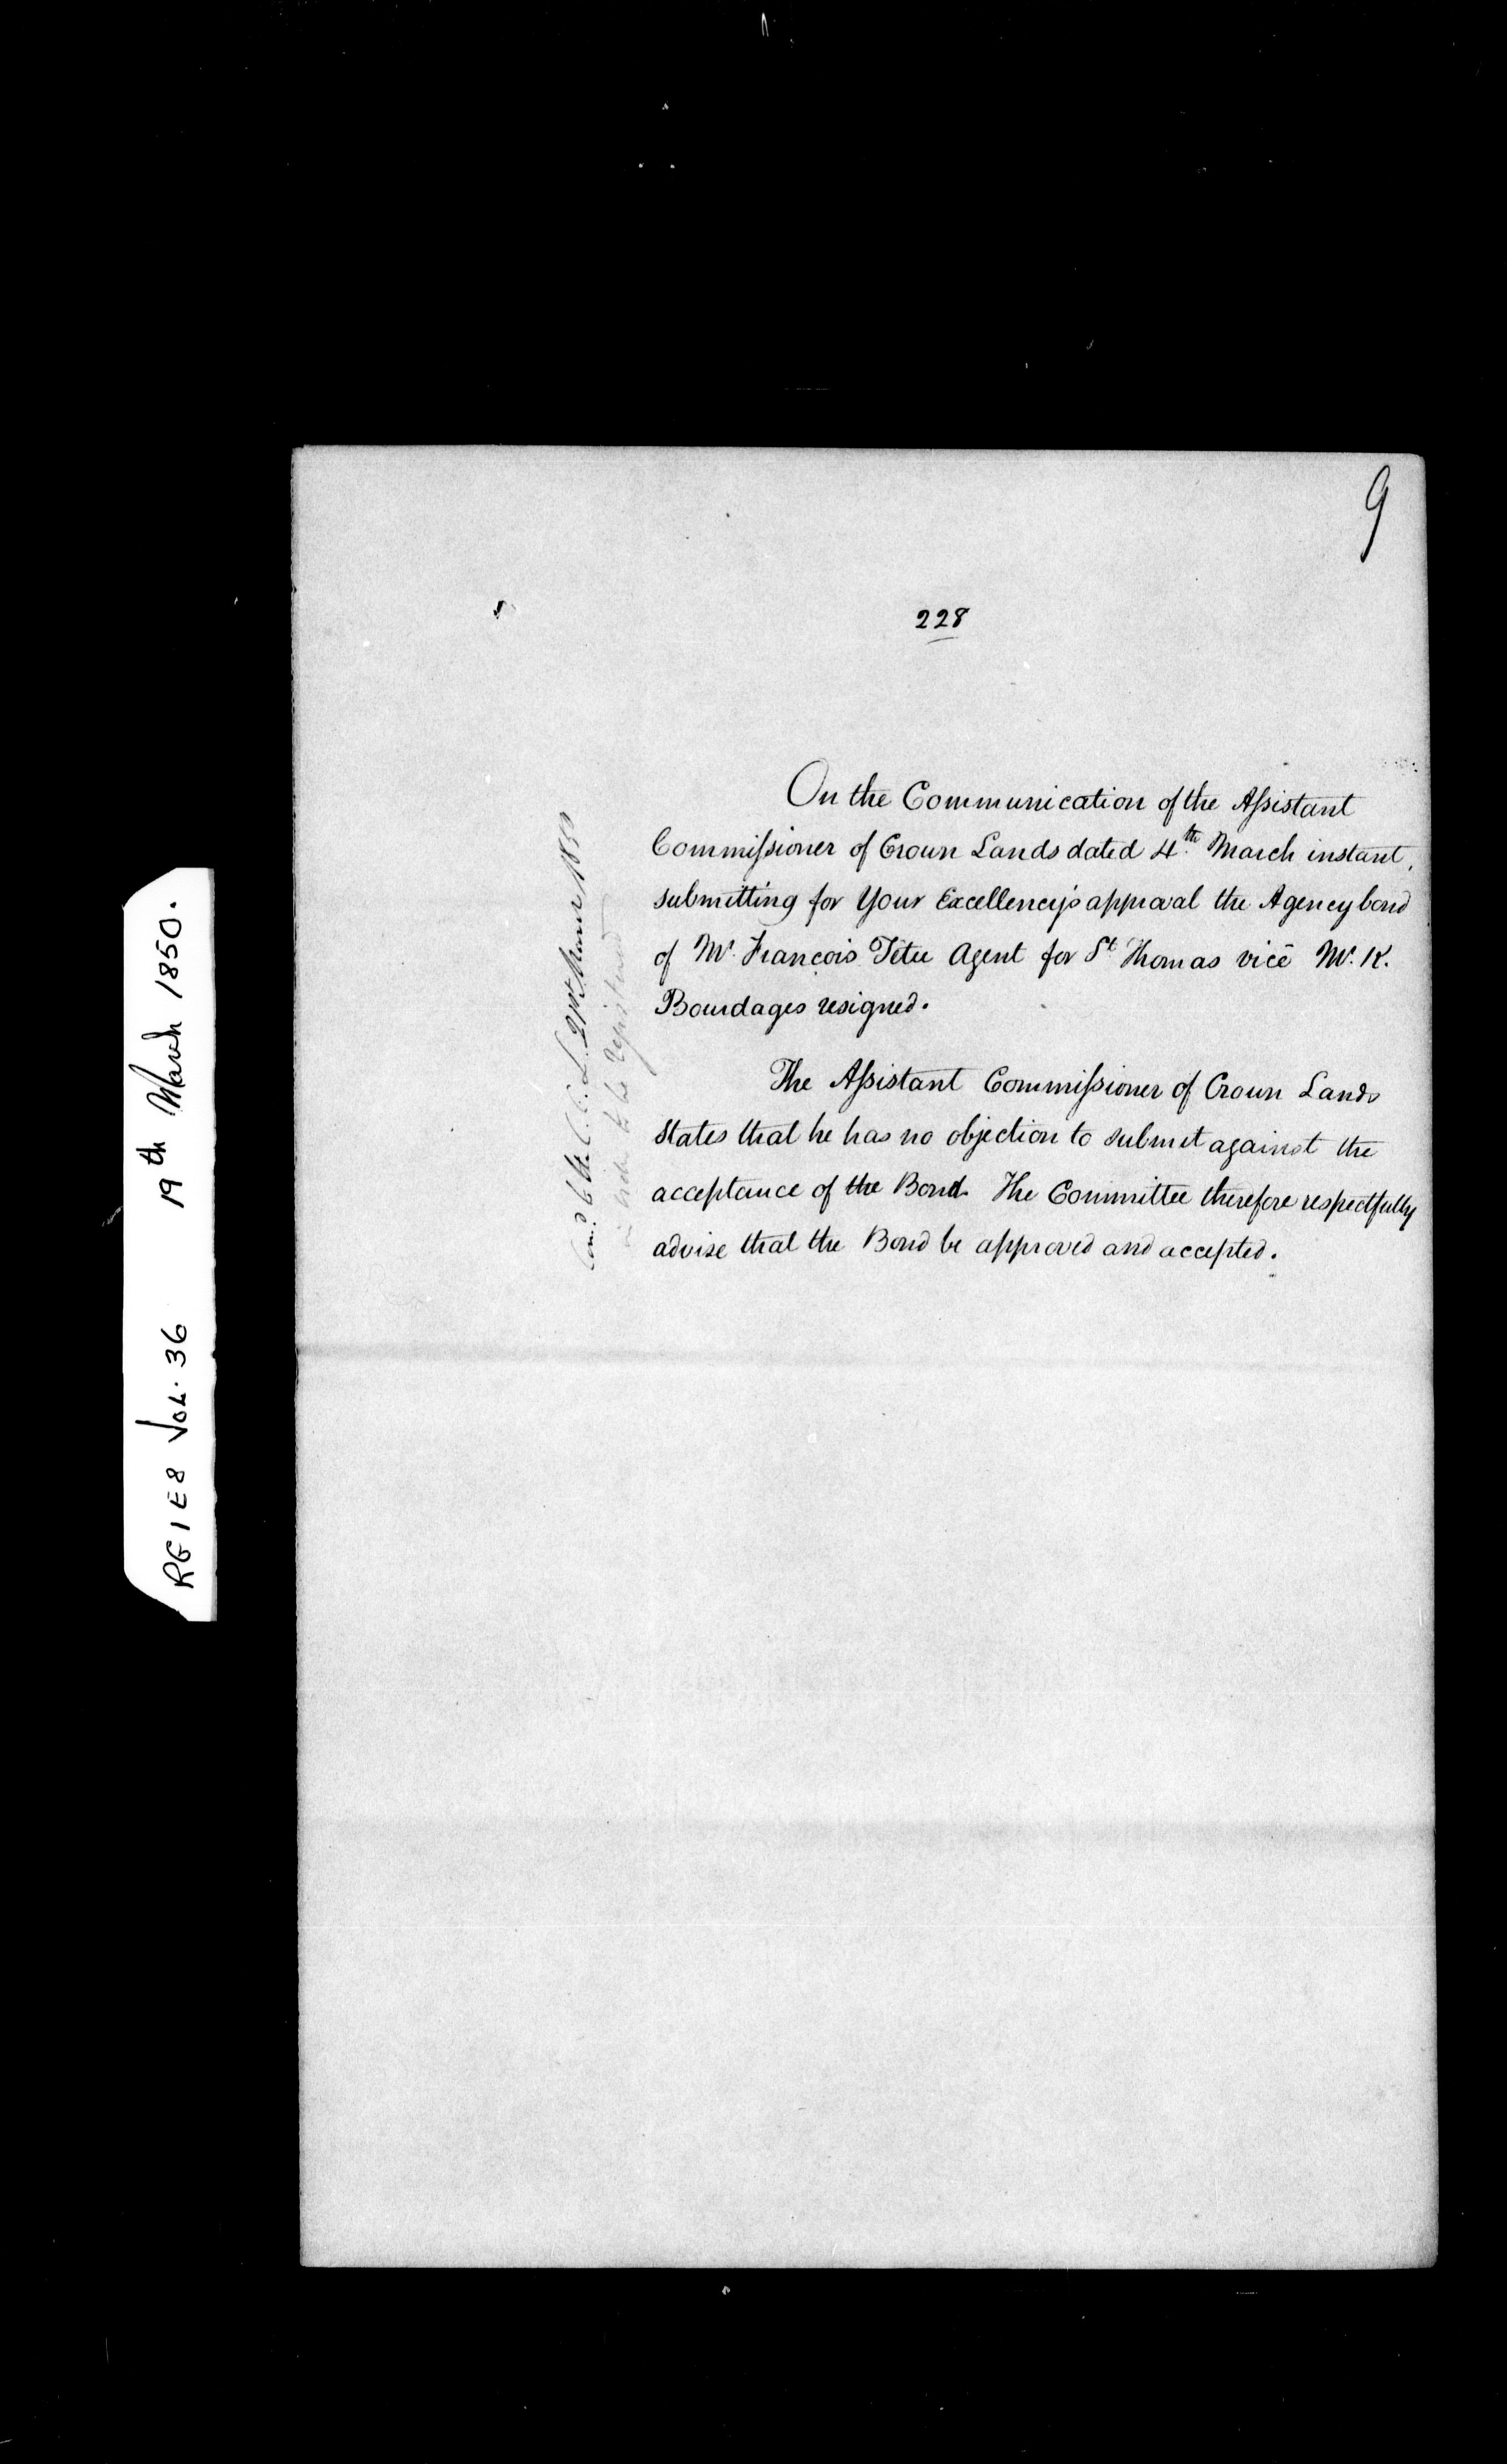 9
228
On the Communication of the Assistant
Commissioner of Crown Lands dated 4th March instant,
submitting for Your Excellency's approval the Agency bond
of Mr. François Tetu Agent for St Thomas vice Mr. K.
Bourdages resigned.
The Assistant Commissioner of Crown Lands
states that he has no objection to submit against the
acceptance of the Bond. The Committee therefore respectfully
advise that the Bond be approved and accepted.
Com.d to the C. C. L. 21st March 1850
to be registered
RG 1 E8 VOL. 36 19th March 1850.